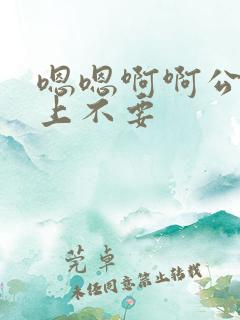 嗯嗯啊啊公
上不要
莞卓
未经同意禁止转载